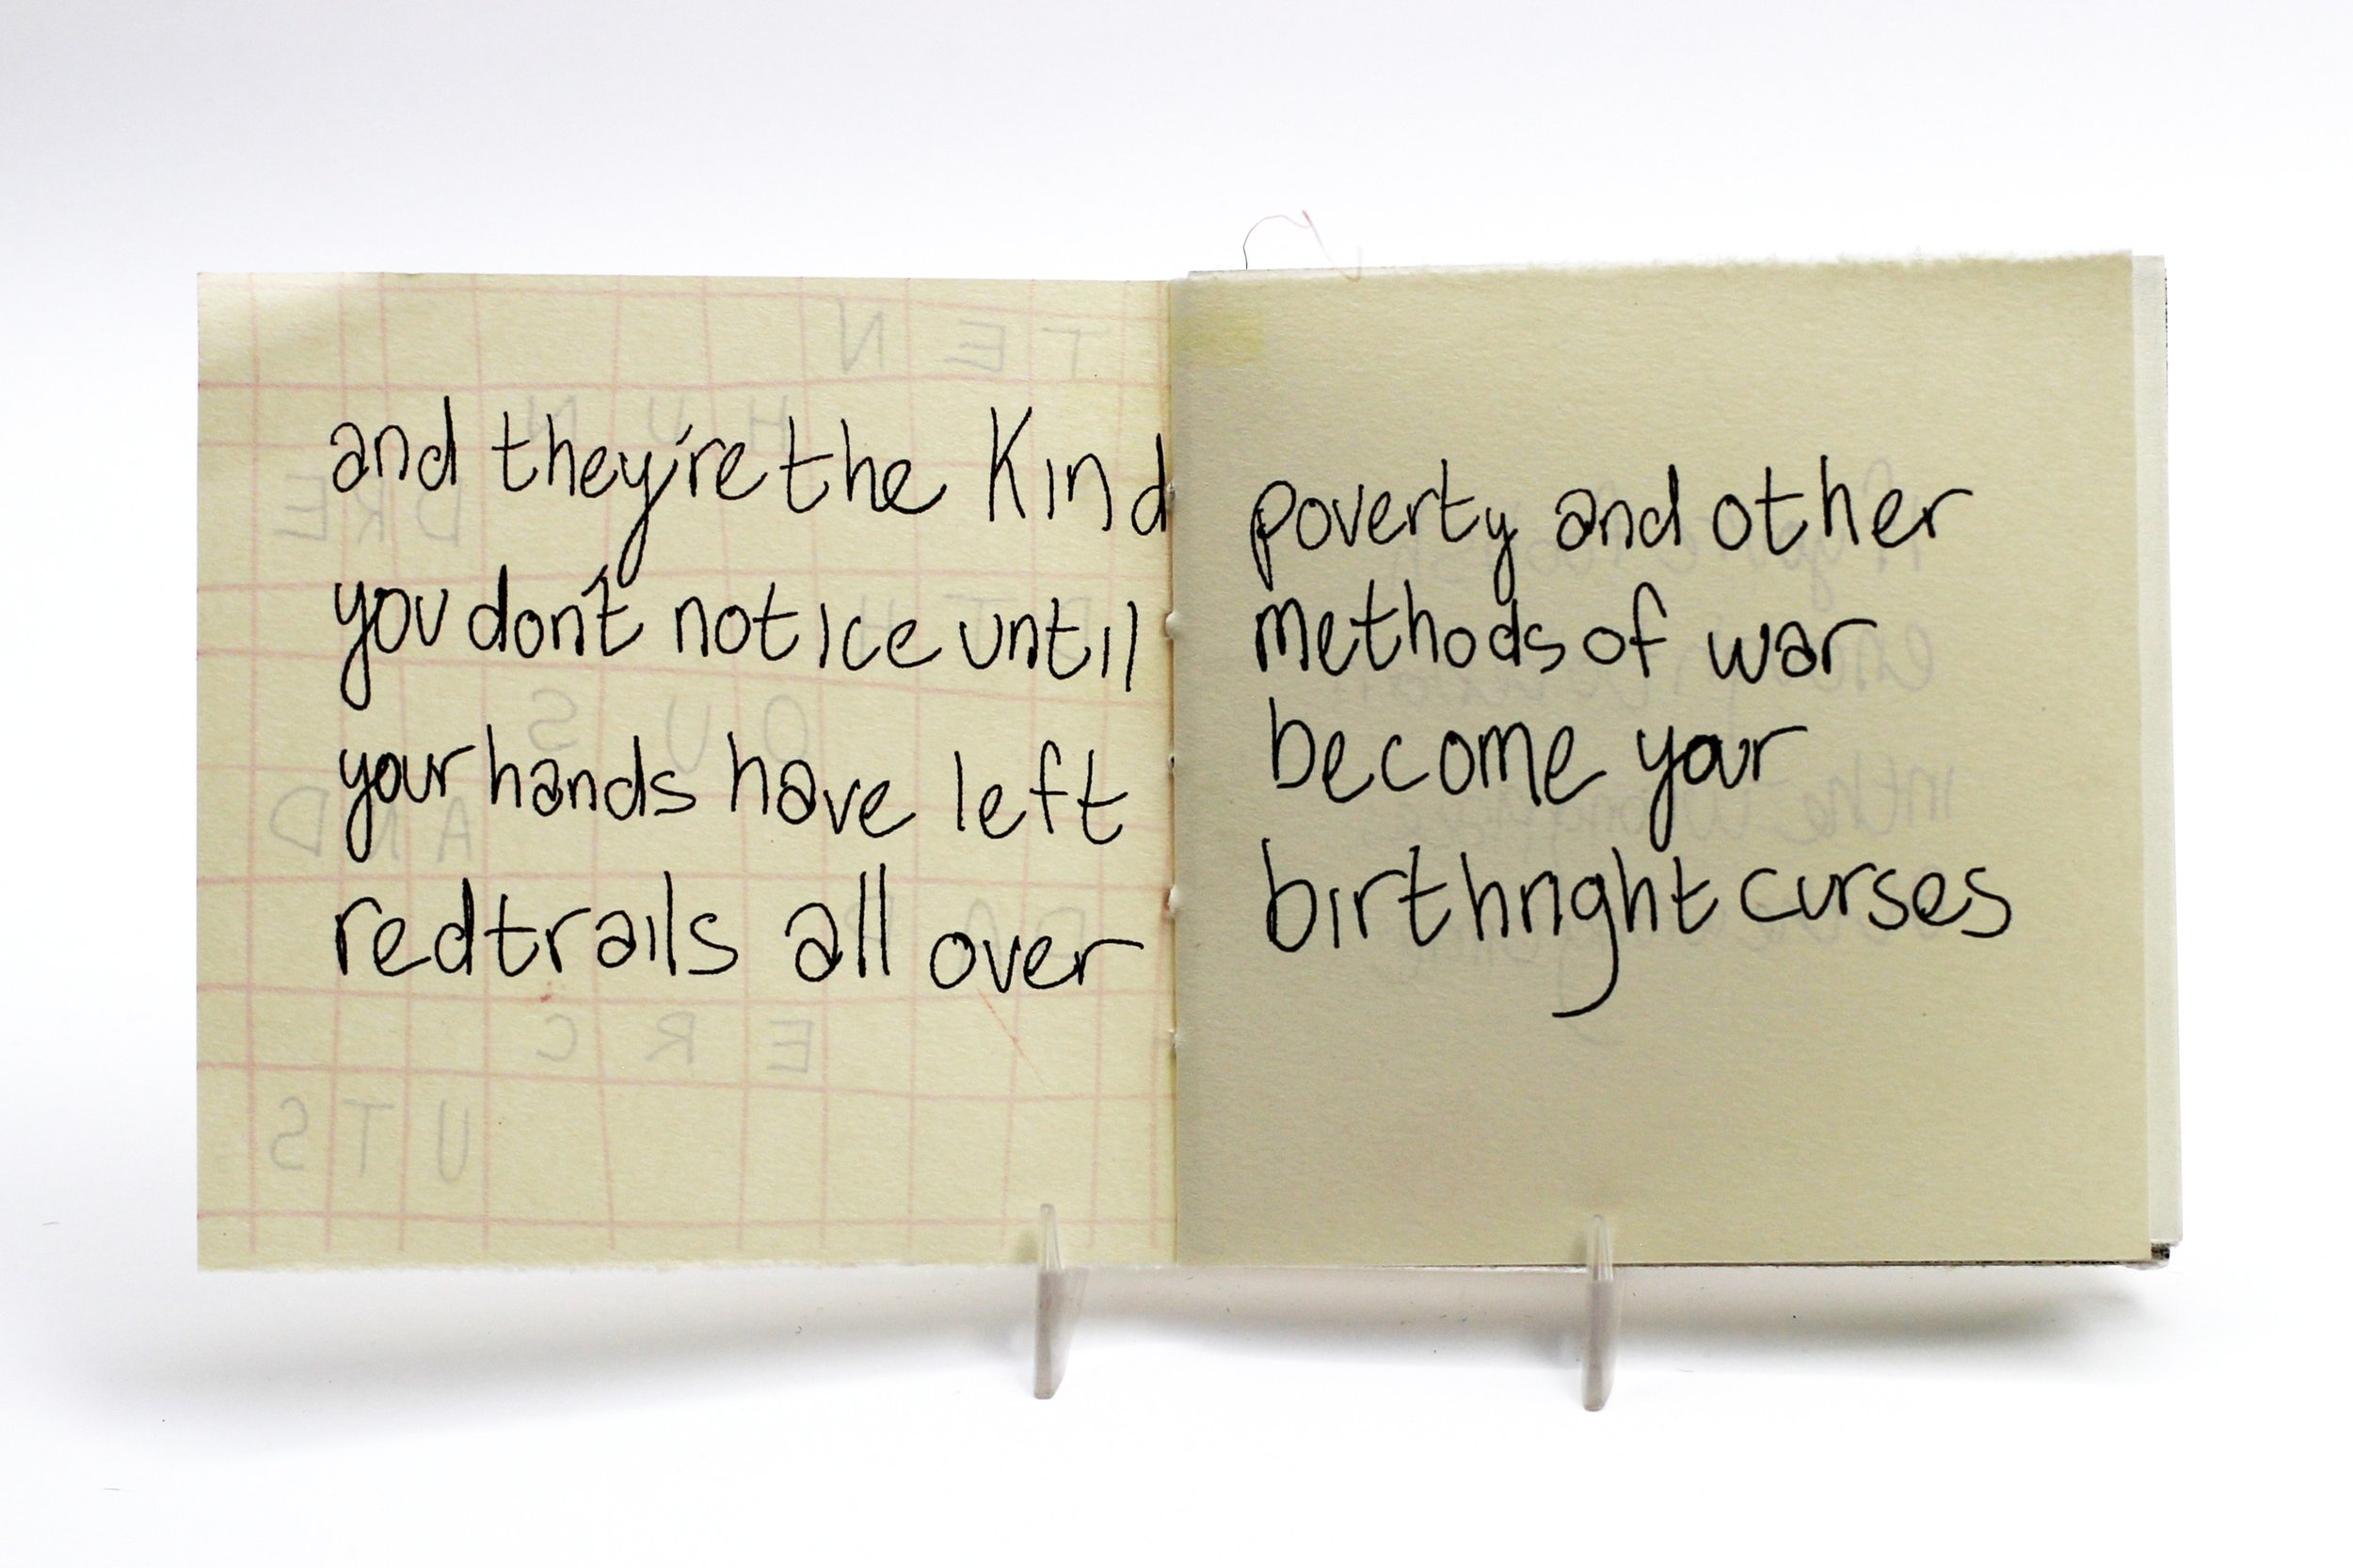 and they're the Kind
you don't notice until
your hands have left
red trails all over
poverty and other
methods of war
become your
birthright curses
TEN
HUN
DRE
OUS
AND
ERC
UTS